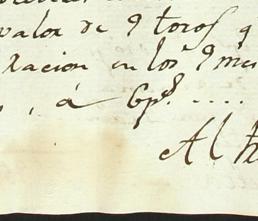 valor de 9 toros q
xacion en los 9 mes
, á 6 p.s ....
Al